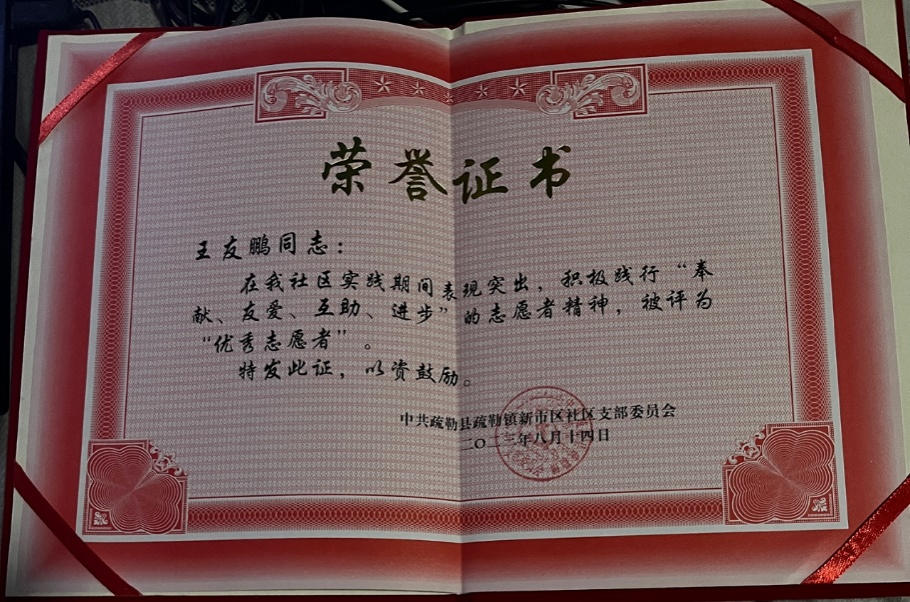 荣誉证书
王友鹏同志：
在我社区实践期间表现突出，积极践行“奉
献、友爱、互助、进步”的志愿者精神，被评为
“优秀志愿者”。
特发此证，以资鼓励。
中共疏勒县疏勒镇新市区社区支部委员会
二〇二三年八月十四日